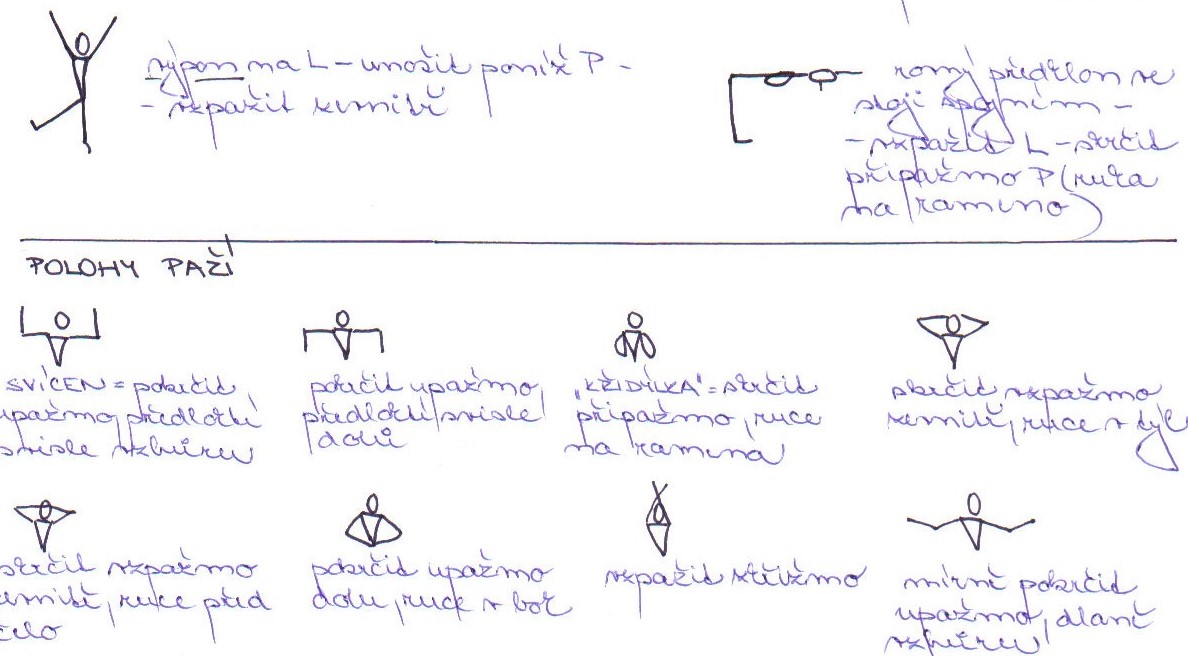 výpon na L – unožit poniž P –
– vzpažit zevnitř
rovný předklon ve
stoji spojném –
– vzpažit L – skrčit
připažmo P (ruka
na rameno)
POLOHY PAŽÍ
SVÍCEN = pokrčit
upažmo, předloktí
svisle vzhůru
pokrčit upažmo,
předloktí svisle
dolů
"KŘIDÝLKA" = skrčit
připažmo, ruce
na ramena
skrčit vzpažmo
zevnitř, ruce v týl
skrčit vzpažmo
zevnitř, ruce před
čelo
pokrčit upažmo
dolů, ruce v bok
vzpažit skřižmo
mírně pokrčit
upažmo, dlaně
vzhůru